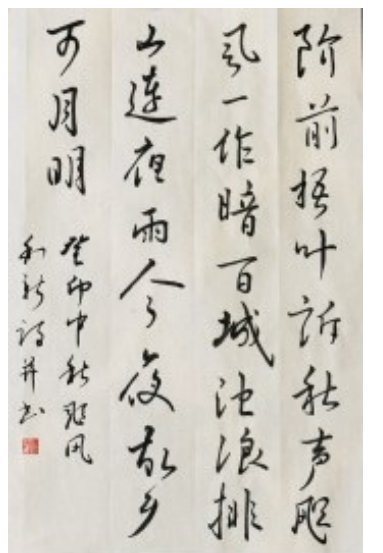 阶前梧叶诉秋声飓
风一作暗百城池浪排
山连夜雨今夜故乡
可月明
癸卯中秋飓风
新诗并书